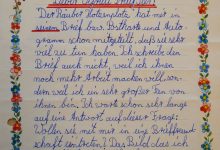 Der Räuber Hotzenplotz, hat mir in
seinem Brief bzw. und Auto-
gramm schon mitgeteilt, daß sie sehr
viel zu tun haben. Ich schreibe den
Brief auch nicht, weil ich ihnen
noch mehr Arbeit machen will, son-
dern weil ich ein sehr großer Fan von
ihnen bin. Ich wart schon sehr lange
auf eine Antwort auf dieser Frage:
Wollen sie mit mir in Brieffreund-
schaft eintreten? Das Bild, das ich